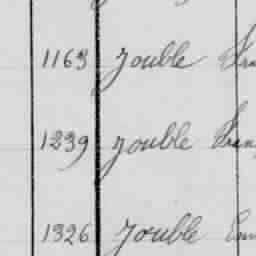 1163 Jouble
1239 Jouble
1326 Jouble